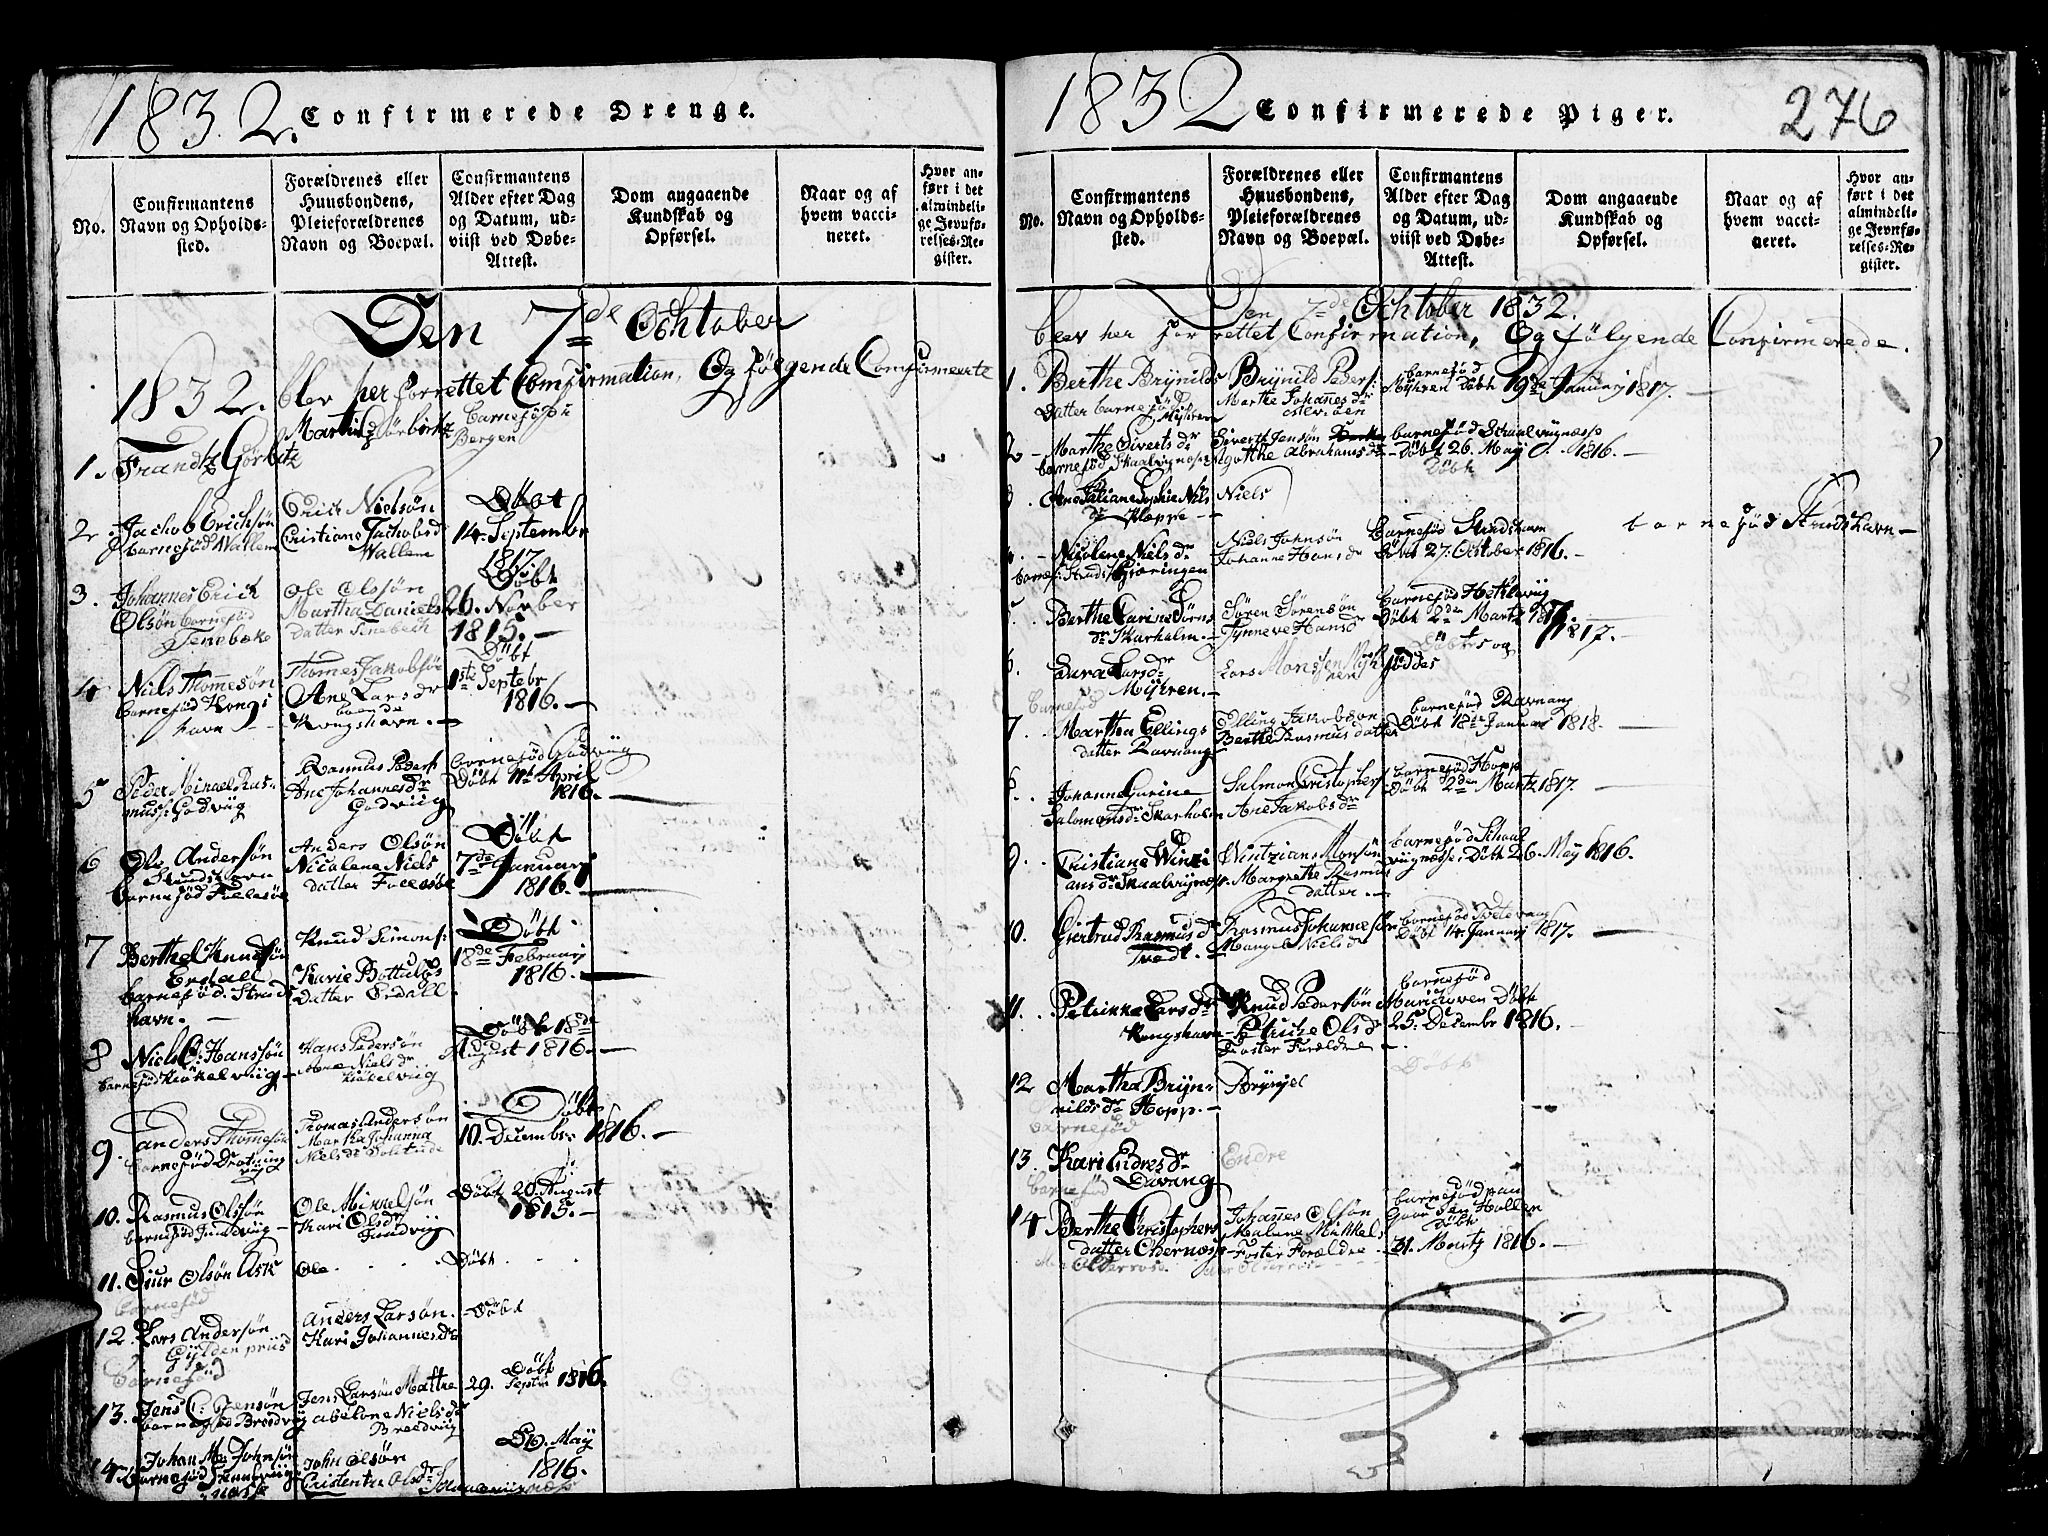 1832. Confirmerede Drenge.
No.
Confirmantens
Navn og Opholds-
sted.
Forældrenes eller
Huusbondens,
Pleieforældrenes
Navn og Boepæl.
Confirmantens
Alder efter Dag
og Datum, ud-
viist ved Døbe-
Attest.
Dom angaaende
Kundskab og
Opførsel.
Naar og af
hvem vacci-
neret.
Hvor an-
ført i det
almindeli-
ge Jevnfø-
relses-Re-
gister.
Den 7de Ochtober
1832. blev her forrettet Confirmation, Og følgende Confirmerete
1. Frandtz Görbitz
Martin Görbitz
barneföd i
Bergen
2. Jachob Erichsön
barneföd Wallem
Erich Nielsön
Cristiane Jachobsd
Wallem
Döbt
14. Septembr
1817.
3. Johannes Erich
Olsön barneföd
Tenebæke
Ole Olsön
Martha Daniels
datter Tenebech
Döbt
26. Novber
1815. —
4 Niels Thomesön
barneföd Kongs
havn —
Thomes Jakobsön
Ane Larsdr
boende
Kongshavn. —
Döbt
1ste Septebr
1816. —
5 Peder Minael Ras-
mus: Godviig
Rasmus Peders:
Ane Johannesdr
Godviig
barneföd Godviig
Döbt 14 April
1816. —
6 Ole Andersön
Strudshavn
barneföd Follesöe
Anders Olsön
Nicolene Niels
datter Follesöe
Döbt
7de Januarj
1816. —
7 Berthel Knudsön
Erdall
barneföd. Struds
havn. —
Knud Simons:
Karie Bottulfs
datter Erdall.
Döbt
18de Februarj
1816. —
8 Niels C: Hanssön
barneföd Kiökelviig —
Hans Pedersön
Ane Nielsdr
Kiökelviig
Döbt 18de
August 1816. —
9. Anders Thomesön
barneföd Drotning
viig
Thomas Andersön
Martha Johanna
Nielsdr Solitude
Döbt
10. Decembr: 1816. —
10. Rasmus Olsön
barneföd Juvdviig —
Ole Mikkelsön
Kari Olsdr
Juvdviig
Döbt 20. August
1815. —
11. Siur Olsön Ask
barneföd
Ole
Döbt
12. Lars Andersön
Gyldenpriis
barneföd
Anders Larsön.
Kari Johannesdr
Döbt
13. Jens C: Jensön
barneföd Breedviig
Jens Larsön Mattre
Abelone Nielsdr
Breedviig
Döbt
29. Septbr 1816.
14. Johan M: Johnsön
barneföd
John Olsön
Cristentse Olsdr
26. May
1816.
1832 Confirmerede Piger. 276
No.
Confirmantens
Navn og Opholds-
sted.
Forældrenes eller
Huusbondens,
Pleieforældrenes
Navn og Boepæl.
Confirmantens
Alder efter Dag
og Datum, ud-
viist ved Døbe-
Attest.
Dom angaaende
Kundskab og
Opførsel.
Naar og af
hvem vacci-
neret.
Hvor an-
ført i det
almindeli-
ge Jevnfø-
relses-Re-
gister.
Den 7de Ochtober 1832.
blev her forrettet Confirmation, Og følgende Confirmerede.
1. Berthe Brÿnilds
datter barneföd
Myhren
Brÿnild Peders:
Marthe Johanesdr
barneföd
Myhren Döbt 19de Januarj 1817. —
2 — Marthe Sivertsdr
barneföd Skaalvigness
Siverth Jensön
Agathe Abrahamsdr
barneföd Schaalvignæss
— Döbt 26. Maij 1816. —
Döbt
3. Ane Taliane Sophie Nils
dr Kleppe —
Niels
4. — Nicolene Nielsdr
barnef: Struds: Gjeringen
Niels Johnsön
Johanne Hansdr
Barneföd Strudshavn
Döbt 27. October 1816. —
barneföd Strudshavn —
5. Berthe Carine Sörns
dr Skarholm. —
Sören Sörensön
Synneve Hansdr
barneföd Hetleviig
Döbt 2den Martz 1817. —
6. Sara Larsdr
Myhren. —
barneföd
Lars Monssen Myh
ren
Döbtes og
föddes
7. Martha Ellings
datter Ravnang
Elling Jakobsön
Berthe Rasmusdatter
barneföd Ravnang
Döbt 18de Januar 1818. —
8. Johanne Gurine
Salomonsdr Skarholm
Salmon Cristophers
Ane Jakobsdr
barneföd Hopp
Döbt 2den Martz 1817. —
9. Cristiane Winzi
ansdr Skaalvignæss.
Wintzians Monsön
Margrethe Rasmus
datter. —
barneföd Schaal
viignæss: Döbt 26. Maÿ 1816.
10. Giertrud Rasmusdr
Tvedt. —
Rasmus Johannesön
Mangele Nielsdr
barneföd Toftevaag
Döbt 14. Januarj 1817. —
11. Petrikke Larsdr
Kongshavn —
Knud Pedersön
Petriche Olsdr
Foster Forældre —
barneföd
Marichoven Döbt
25. Decembr 1816. —
12 Martha Brÿn-
nildsdr Hopp. —
barneföd
Brÿnjel
Döbt
13. Kari Endresdr
Davang
barneföd
Endre
14 Berthe Christophers
datter
Johanes Olsön
Malene Mikkels
— Foster Forældre —
barneföd paa
Gaarden Hollen
Döbt
31. Martz 1816. —